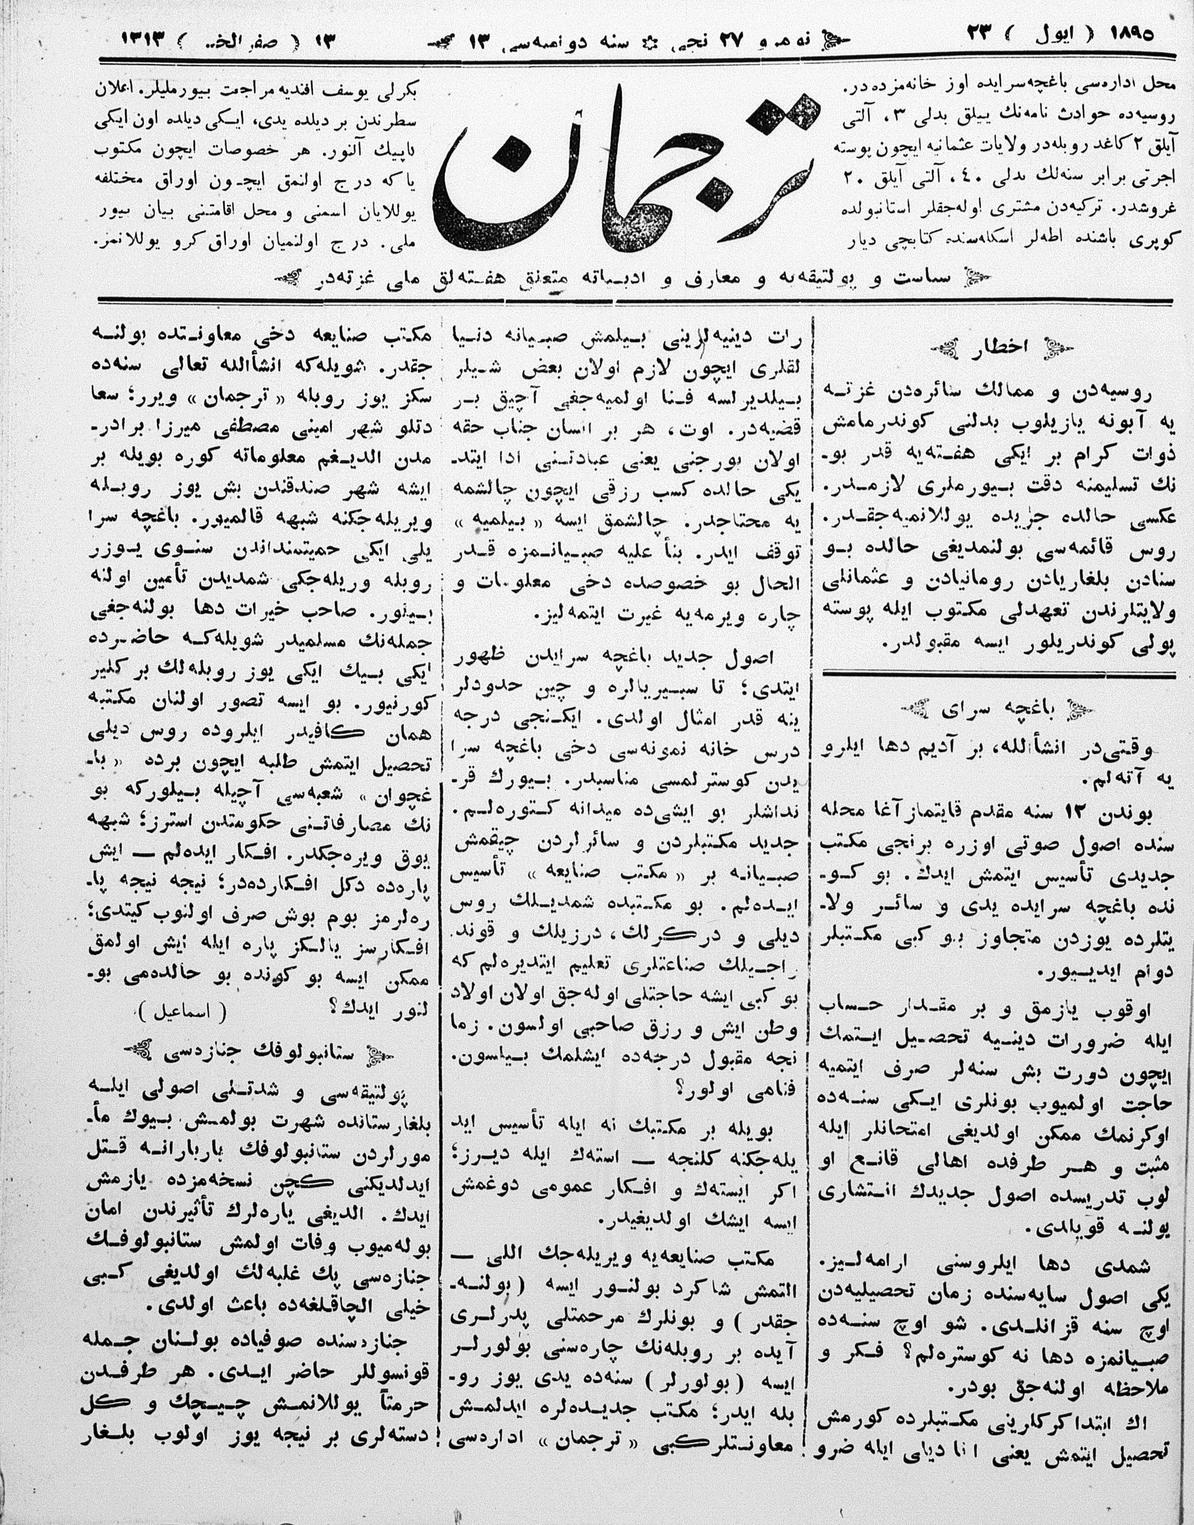 ١٨٩٥ ( ايول ) ٢٣
نومرو ٢٧ نجى ۞ سنه دواميه‌سى ١٣
١٣ ( صفر الخـ. ) ١٣١٣
محل اداره‌سى باغچه‌سرايده اوز خانه‌مزده‌در.
روسيه‌ده حوادث نامه‌نك ييلق بدلى ٣، آلتى
آيلق ٢ كاغد روبله‌در ولايات عثمانيه ايچون پوسته
اجرتى برابر سنه‌لك بدلى ٤٠، آلتى آيلق ٢٠
غروشدر. تركيه‌دن مشترى اوله‌جقلر استانبولده
كوپرى باشنده اطه‌لر اسكله‌سنده كتابچى ديار
ترجمان
بكرلى يوسف افنديه مراجعت بيورمليلر. اعلان
سطرندن بر ديلده يدى، ايكى ديلده اون ايكى
كاپيك آلنور. هر خصوصات ايچون مكتوب
ياكه درج اولنمق ايچون اوراق مختلفه
يوللايان اسمنى و محل اقامتنى بيان بيور
ملى. درج اولنميان اوراق كرو يوللانمز.
سياست و پولتيقه‌يه و معارف و ادبياته متعلق هفته‌لق ملى غزته‌در
اخطار
روسيه‌دن و ممالك سائره‌دن غزته
يه آبونه يازيلوب بدلنى كوندرمامش
ذوات كرام بر ايكى هفته‌يه قدر بو-
نك تسليمنه دقت بيورملرى لازمدر.
عكسى حالده جريده يوللانميه‌جقدر.
روس قائمه‌سى بولنمديغى حالده بو
سنادن بلغاريادن رومانيادن و عثمانلى
ولايتلرندن تعهدلى مكتوب ايله پوسته
پولى كوندريلور ايسه مقبولدر.
باغچه سراى
وقتى‌در انشأالله، بر آديم دها ايلرو
يه آته‌لم.
بوندن ١٢ سنه مقدم قايتماز آغا محله
سنده اصول صوتى اوزره برنجى مكتب
جديدى تأسيس ايتمش ايدك. بو كو-
نده باغچه سرايده يدى و سائر ولا-
يتلرده يوزدن متجاوز بو كبى مكتبلر
دوام ايديور.
اوقوب يازمق و بر مقدار حساب
ايله ضرورات دينيه تحصيل ايتمك
ايچون دورت بش سنه‌لر صرف ايتميه
حاجت اولميوب بونلرى ايكى سنه‌ده
اوكرنمك ممكن اولديغى امتحانلر ايله
مثبت و هر طرفده اهالى قانع او
لوب تدريسده اصول جديدك انتشارى
يولنه قويلدى.
شمدى دها ايلروسنى ارامه‌ليز.
يكى اصول سايه‌سنده زمان تحصيليه‌دن
اوچ سنه قزانلدى. شو اوچ سنه‌ده
صبيانمزه دها نه كوستره‌لم؟ فكر و
ملاحظه اولنه‌جق بودر.
اك ابتدا كركلرينى مكتبلرده كورمش
تحصيل ايتمش يعنى انا ديلى ايله ضرو
رات دينيه‌لرينى بيلمش صبيانه دنيا
لقلرى ايچون لازم اولان بعض شيلر
بيلديرلسه فنا اولميه‌جغى آچيق بر
قضيه‌در. اوت، هر بر انسان جناب حقه
اولان بورجنى يعنى عبادتنى ادا ايتد-
يكى حالده كسب رزقى ايچون چالشمه
يه محتاجدر. چالشمق ايسه «بيلميه»
توقف ايدر. بنأ عليه صبيانمزه قدر
الحال بو خصوصده دخى معلومات و
چاره ويرمه‌يه غيرت ايتمه‌ليز.
اصول جديد باغچه سرايدن ظهور
ايتدى؛ تا سبيريالره و چين حدودلر
ينه قدر امثال اولدى. ايكنجى درجه
درس خانه نمونه‌سى دخى باغچه سرا
يدن كوسترلمسى مناسبدر. بيورك قر-
نداشلر بو ايشى‌ده ميدانه كتوره‌لم.
جديد مكتبلردن و سائرلردن چيقمش
صبيانه بر «مكتب صنايعه» تأسيس
ايده‌لم. بو مكتبده شمديلك روس
ديلى و دركرلك، درزيلك و قوند
راجيلك صناعتلرى تعليم ايتديره‌لم كه
بو كبى ايشه حاجتلى اوله‌جق اولان اولاد
وطن ايش و رزق صاحبى اولسون. زما
نجه مقبول درجه‌ده ايشلمك بيلسون.
فنامى اولور؟
بويله بر مكتبك نه ايله تأسيس ايد
يله‌جكنه كلنجه — استه‌ك ايله ديرز؛
اكر ايسته‌ك و افكار عمومى دوغمش
ايسه ايشك اولديغيدر.
مكتب صنايعه‌يه ويريله‌جك اللى —
التمش شاكرد بولنور ايسه (بولنه-
جقدر) و بونلرك مرحمتلى پدرلرى
آيده بر روبله‌نك چاره‌سنى بولورلر
ايسه (بولورلر) سنه‌ده يدى يوز رو-
بله ايدر؛ مكتب جديده‌لره ايدلمش
معاونتلر كبى «ترجمان» اداره‌سى
مكتب صنايعه دخى معاونتده بولنه
جقدر. شويله‌كه انشأالله تعالى سنه‌ده
سكز يوز روبله «ترجمان» ويرر؛ سعا
دتلو شهر امينى مصطفى ميرزا برادر-
مدن الديغم معلوماته كوره بويله بر
ايشه شهر صندقندن بش يوز روبله
ويريله‌جكنه شبهه قالميور. باغچه سرا
يلى ايكى حميتمنداندن سنوى يوزر
روبله وريله‌جكى شمديدن تأمين اولنه
بيلور. صاحب خيرات دها بولنه‌جغى
جمله‌نك مسلميدر شويله‌كه حاضرده
ايكى بيك ايكى يوز روبله‌لك بر كلير
كورنيور. بو ايسه تصور اولنان مكتبه
همان كافيدر ايلروده روس ديلى
تحصيل ايتمش طلبه ايچون برده «با-
غچوان» شعبه‌سى آچيله بيلوركه بو
نك مصارفاتنى حكومتدن استرز؛ شبهه
يوق ويره‌جكدر. افكار ايده‌لم — ايش
پاره‌ده دكل افكارده‌در؛ نيجه نيجه پا-
ره‌لرمز بوم بوش صرف اولنوب كيتدى؛
افكارسز يالكز پاره ايله ايش اولمق
ممكن ايسه بو كونده بو حالده‌مى بو-
لنور ايدك؟ (اسماعيل)
ستانبولوفك جنازه‌سى
پولتيقه‌سى و شدتلى اصولى ايله
بلغارستانده شهرت بولمش بيوك مأ-
مورلردن ستانبولوفك باربارانه قتل
ايدلديكنى كچن نسخه‌مزده يازمش
ايدك. الديغى ياره‌لرك تأثيرندن امان
بوله‌ميوب وفات اولمش ستانبولوفك
جنازه‌سى پك غلبه‌لك اولديغى كبى
خيلى الچاقلغه‌ده باعث اولدى.
جنازه‌سنده صوفياده بولنان جمله
قونسوللر حاضر ايدى. هر طرفدن
حرمتاً يوللانمش چيچك و كل
دسته‌لرى بر نيجه يوز اولوب بلغار